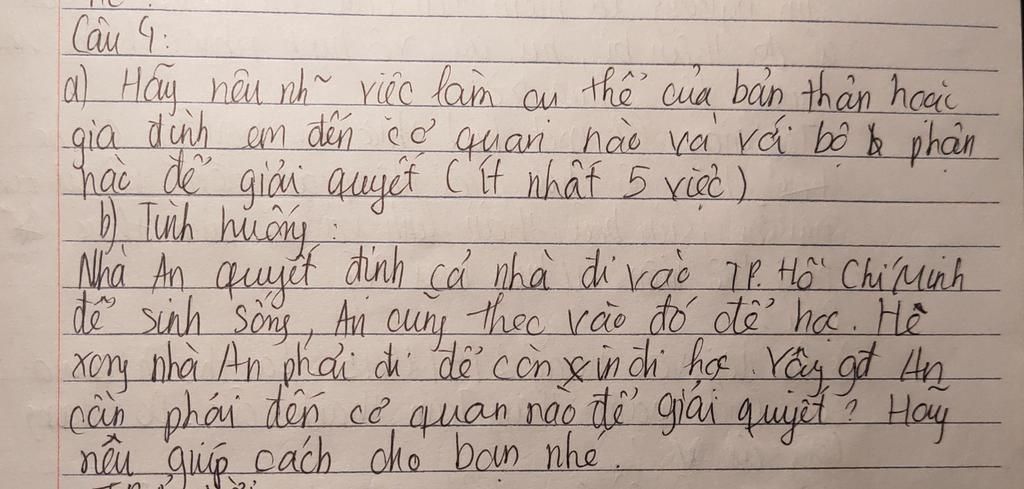 Câu 4:
a) Hãy nêu nh~ việc làm cụ thể của bản thân hoặc
gia đình em đến cơ quan nào và với bộ phận
nào để giải quyết (ít nhất 5 việc)
b) Tình huống:
Nhà An quyết định cả nhà đi vào TP. Hồ Chí Minh
để sinh sống, An cũng theo vào đó để học. Hè
xong nhà An phải đi để còn xin đi học. Vậy gđ An
cần phải đến cơ quan nào để giải quyết? Hãy
nêu giúp cách cho bạn nhé.